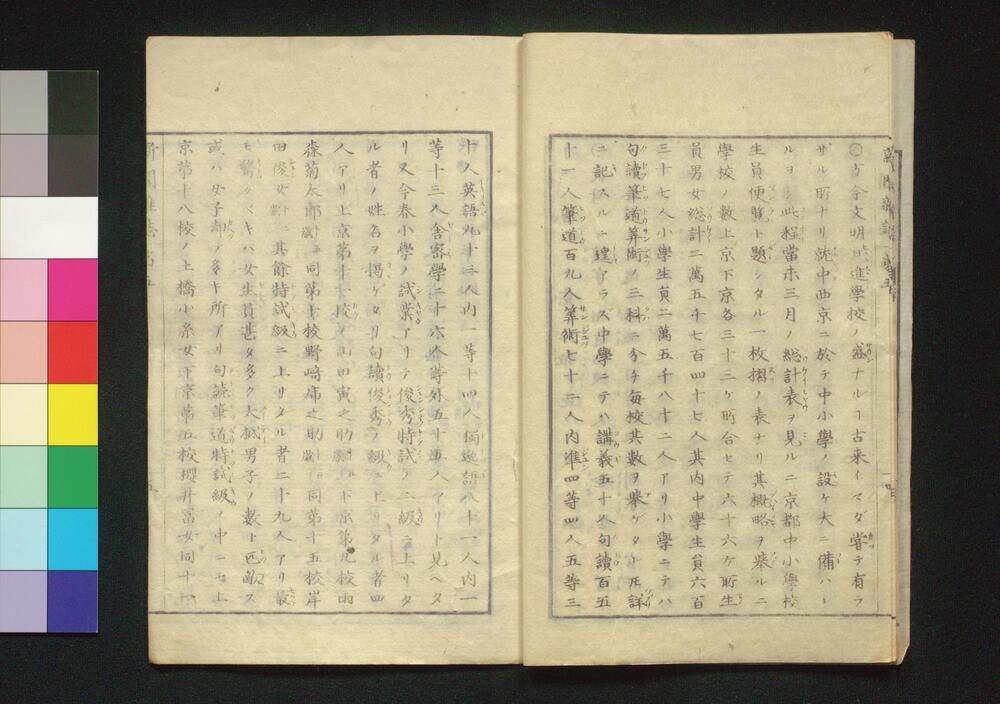 〇方今文明日進學校ノ盛ナルヿ古来イマダ嘗テ有ラ
ザル所ナリ就中西京ニ於テ中小學ノ設ケ大ニ備ハレ
ルヨシ此程當未三月ノ総計表ヲ見ルニ京都中小學校
生員便覧ト題シタル一枚摺ノ表ナリ其概略ヲ舉ルニ
學校ノ數上京下京各三十三ケ所合セテ六十六ケ所生
員男女総計二萬五千七百四十七人其内中學生員六百
三十七人小學生員二萬五千八十二人アリ小學ニテハ
句讀筆道算術ノ三科ニ分チ毎校其數ヲ舉ゲタレ𪜈詳
ニ記スルニ遑アラス中學ニテハ講義五十人句讀百五
十一人筆道百九人算術七十二人内準四等四人五等三
十人英語九十三人内一等十四人獨逸語八十一人内一
等十三人舎密學二十六人等外五十五人アリト見ヘタ
リ又今春小學ノ試業アリテ俊秀特試ノ二級ニ上リタ
ル者ノ姓名ヲ掲ゲタリ句讀俊秀ノ級ニ上リタル者四
人アリ上京第十一校ノ山田寅之助 下京第九校雨
森菊太郎 同第十校野﨑席之助 同第十五校岸
田俊女 其餘特試級ニ上リタル者二十九人アリ最
モ驚クベキハ女生員甚タ多ク大抵男子ノ數ト匹敵ス
或ハ女子却ノ多キ所アリ句讀筆道特試級ノ中ニモ上
京第十八校ノ土橋小糸女下京第五校櫻井冨女同十一